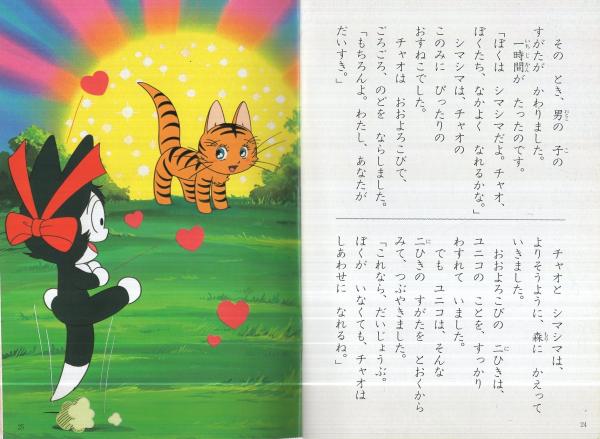 その とき、男の 子の
すがたが かわりました。
一時間が たったのです。
「ぼくは シマシマだよ。チャオ、
ぼくたち、なかよく なれるかな。」
シマシマは、チャオの
このみに ぴったりの
おすねこでした。
チャオは おおよろこびで、
ごろごろ、のどを ならしました。
「もちろんよ。わたし、あなたが
だいすき。」
チャオと シマシマは、
よりそうように、森に かえって
いきました。
おおよろこびの 二ひきは、
ユニコの ことを、すっかり
わすれて いました。
でも ユニコは、そんな
二ひきの すがたを とおくから
みて、つぶやきました。
「これなら、だいじょうぶ。
ぼくが いなくても、チャオは
しあわせに なれるね。」
25
24